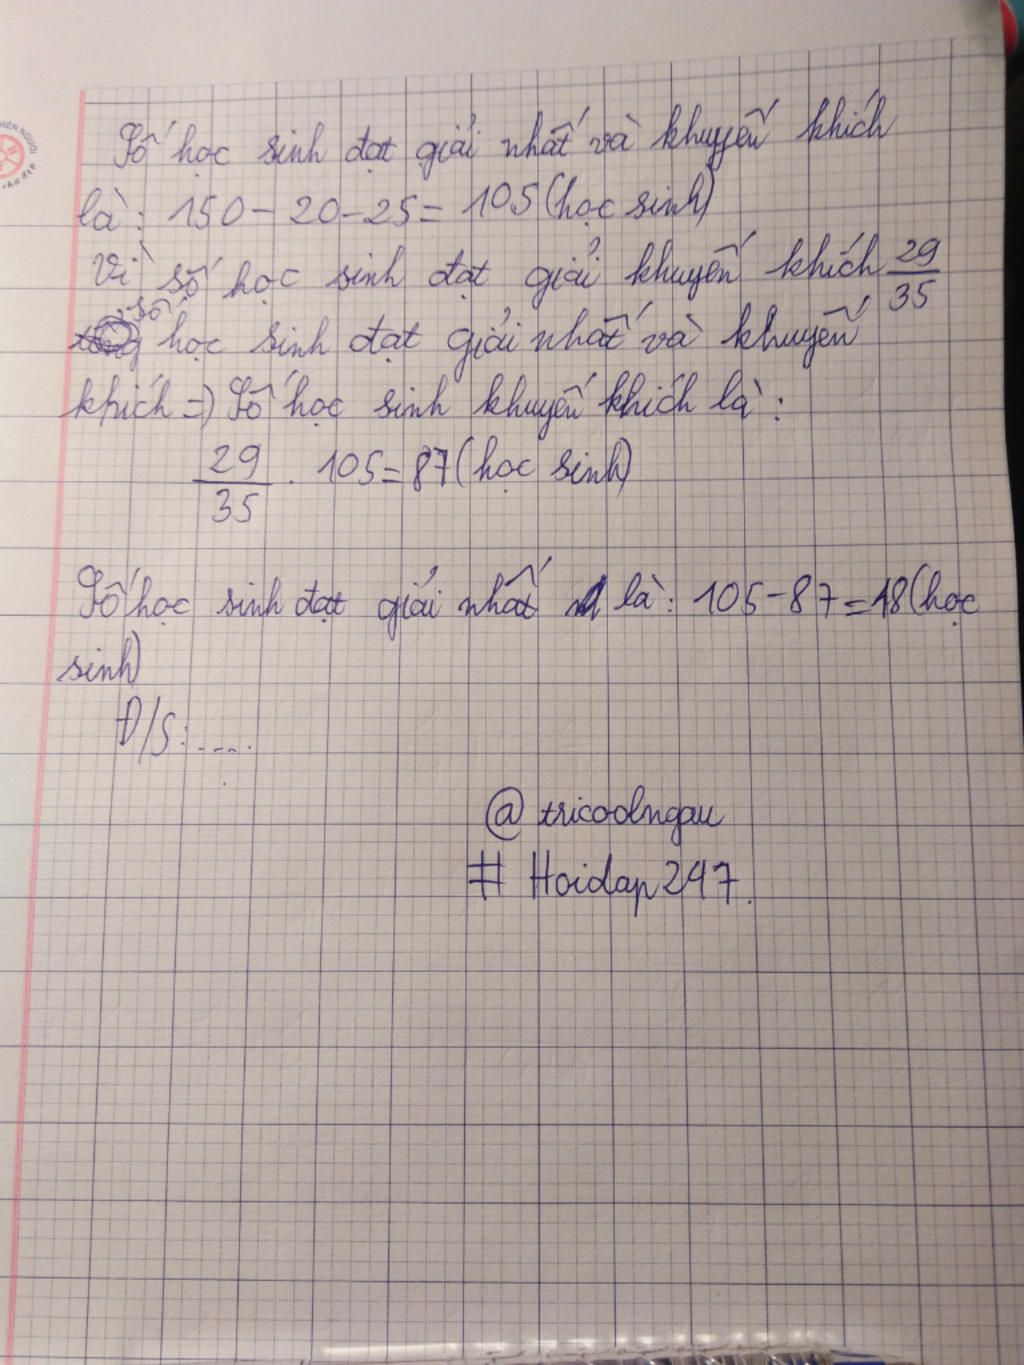 Số học sinh đạt giải nhất và khuyến khích
là: 150 - 20 - 25 = 105 (học sinh)
Vì số học sinh đạt giải khuyến khích 29/35
số học sinh đạt giải nhất và khuyến
khích => Số học sinh khuyến khích là:
29/35 . 105 = 87 (học sinh)
Số học sinh đạt giải nhất là: 105 - 87 = 18 (học
sinh)
Đ/S: ....
@ tricoolngau
# Hoidap247.